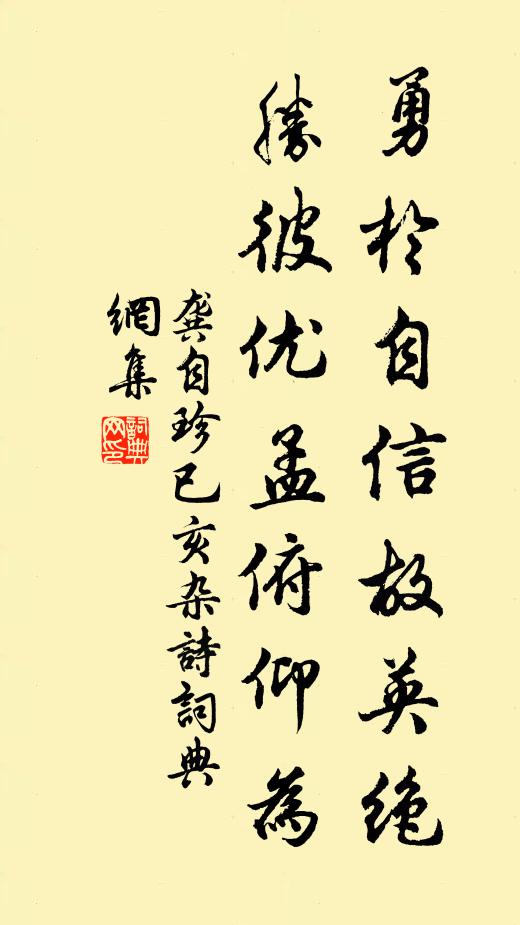 勇於自信故英绝
勝彼优孟俯仰為
龚自珍已亥杂詩詞典
網集
詞典
网印